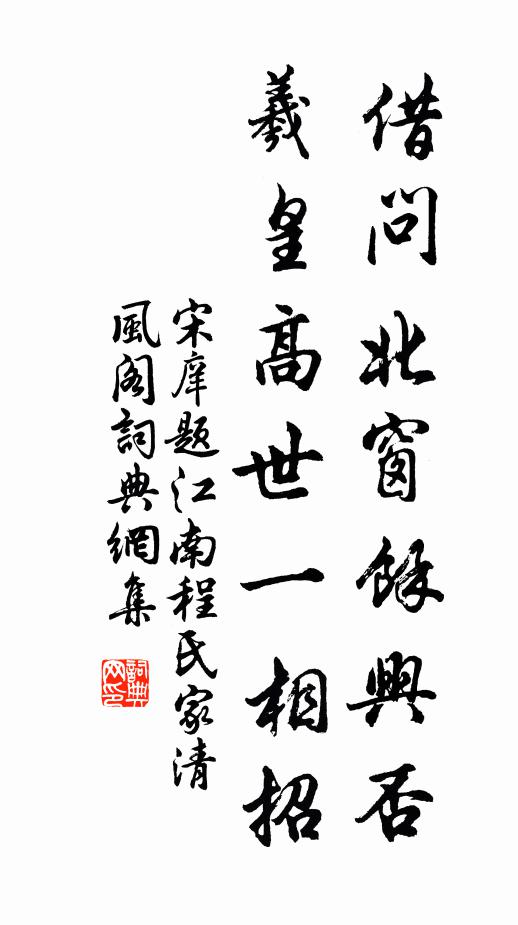 借問北窗餘興否
羲皇高世一相招
宋庠題江南程氏家清
風閣詞典網集
詞典网印